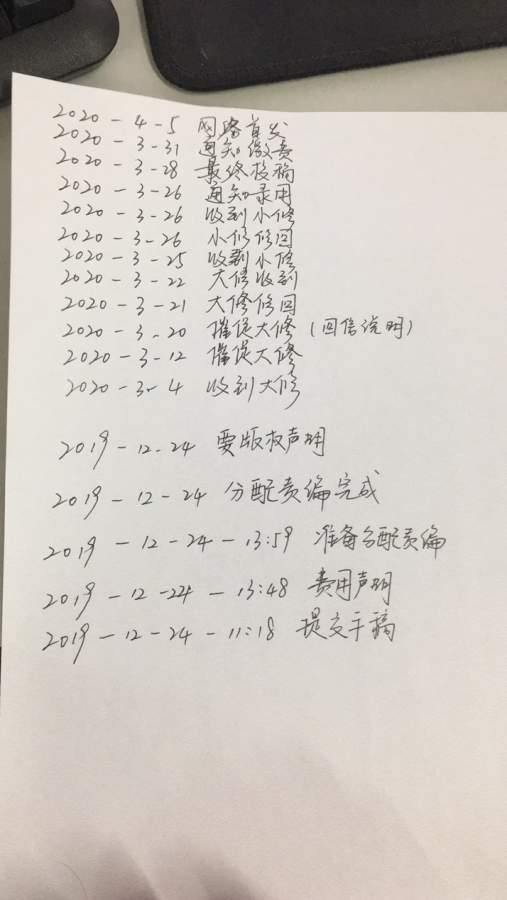 2020-4-5 网络首发
2020-3-31 通知缴费
2020-3-28 最终校稿
2020-3-26 通知录用
2020-3-26 收到小修
2020-3-26 小修修回
2020-3-25 收到小修
2020-3-22 大修收到
2020-3-21 大修修回
2020-3-20 催促大修 (回信说明)
2020-3-12 催促大修
2020-3-4 收到大修
2019-12-24 要版权声明
2019-12-24 分配责编完成
2019-12-24-13:59 准备分配责编
2019-12-24-13:48 费用声明
2019-12-24-11:18 提交手稿